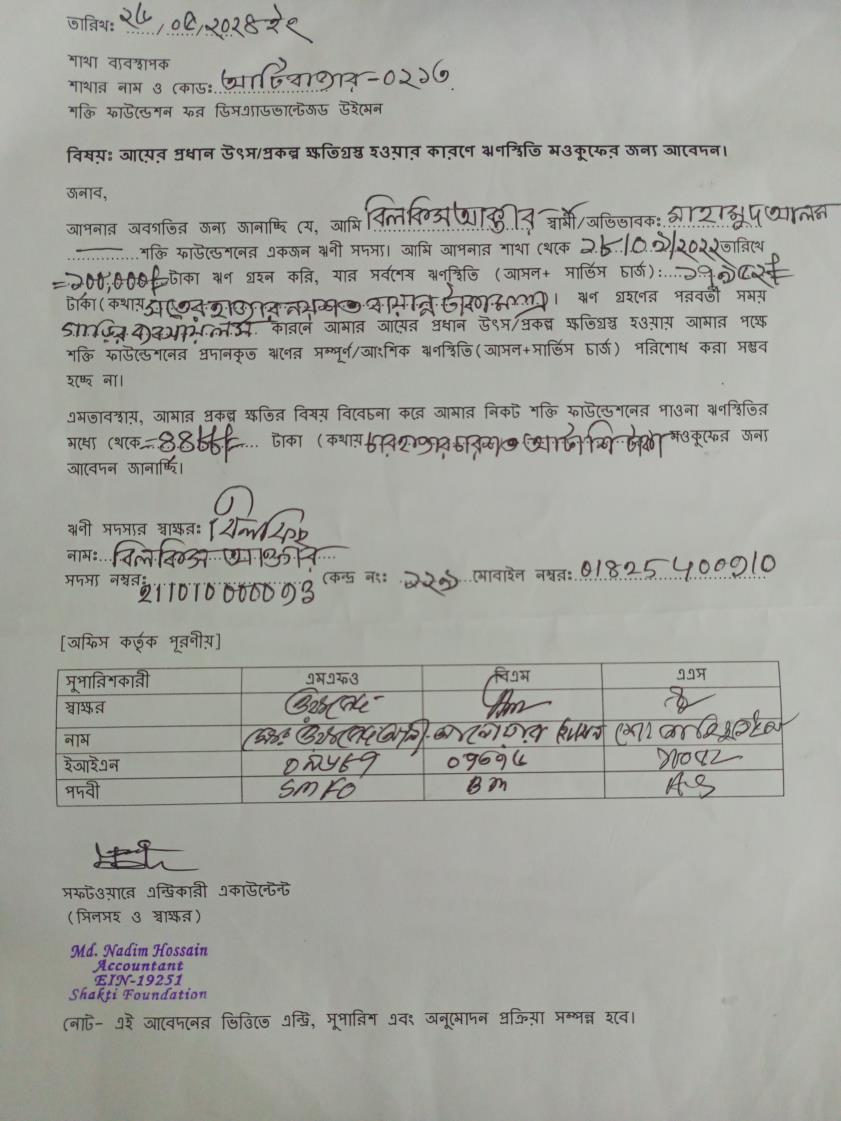 তারিখ: /০৫/২০২৪ইং
শাখা ব্যবস্থাপক
শাখার নাম ও কোড: আটিবাজার-০২১৬
শক্তি ফাউন্ডেশন ফর ডিসএ্যাডভান্টেজড উইমেন
বিষয়: আয়ের প্রধান উৎস/প্রকল্প ক্ষতিগ্রস্থ হওয়ার কারণে ঋণস্থিতি মওকুফের জন্য আবেদন।
জনাব,
আপনার অবগতির জন্য জানাচ্ছি যে, আমি বিলকিস আক্তার স্বামী/অভিভাবক: মাহামুদ আলম
শক্তি ফাউন্ডেশনের একজন ঋনী সদস্য। আমি আপনার শাখা থেকে তারিখে
=১০০,০০০/= টাকা ঋণ গ্রহন করি, যার সর্বশেষ ঋণস্থিতি (আসল+ সার্ভিস চার্জ): ১৭৯৫২/=
টাকা (কথায় সতের হাজার নয়শত বায়ান্ন টাকা মাত্র)। ঋণ গ্রহণের পরবর্তী সময়
কারনে আমার আয়ের প্রধান উৎস/প্রকল্প ক্ষতিগ্রস্থ হওয়ায় আমার পক্ষে
শক্তি ফাউন্ডেশনের প্রদানকৃত ঋণের সম্পূর্ণ/আংশিক ঋণস্থিতি (আসল+সার্ভিস চার্জ) পরিশোধ করা সম্ভব
হচ্ছে না।
এমতাবস্থায়, আমার প্রকল্প ক্ষতির বিষয় বিবেচনা করে আমার নিকট শক্তি ফাউন্ডেশনের পাওনা ঋণস্থিতির
মধ্যে থেকে =৪৪৮৮/= টাকা (কথায় চার হাজার চারশত আটাশি টাকা মওকুফের জন্য
আবেদন জানাচ্ছি।
ঋনী সদস্যর স্বাক্ষর: বিলকিছ
নাম: বিলকিস আক্তার
সদস্য নম্বর: কেন্দ্র নং: ২২৯ মোবাইল নম্বর:
[অফিস কর্তৃক পূরনীয়]
সুপারিশকারী এমএফও বিএম এএস
স্বাক্ষর
নাম
ইআইএন ০৭৬৭৬
পদবী SMFO BM A-S
সফটওয়্যারে এন্ট্রিকারী একাউন্টেন্ট
(সিলসহ ও স্বাক্ষর)
Md. Nadim Hossain
Accountant
EIN-19251
Shakti Foundation
নোট- এই আবেদনের ভিত্তিতে এন্ট্রি, সুপারিশ এবং অনুমোদন প্রক্রিয়া সম্পন্ন হবে।